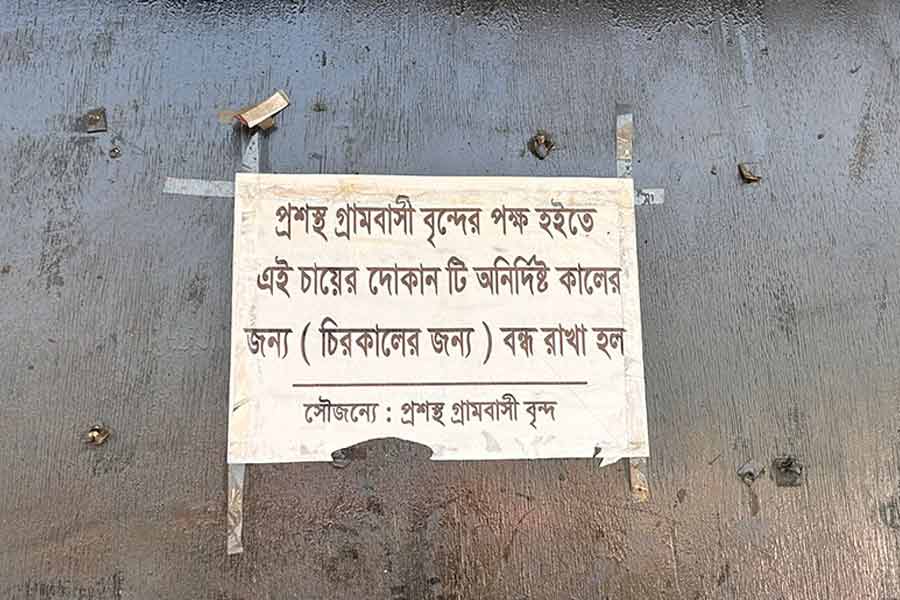 প্রশস্থ গ্রামবাসী বৃন্দের পক্ষ হইতে
এই চায়ের দোকান টি অনির্দিষ্ট কালের
জন্য ( চিরকালের জন্য ) বন্ধ রাখা হল
সৌজন্যে : প্রশস্থ গ্রামবাসী বৃন্দ